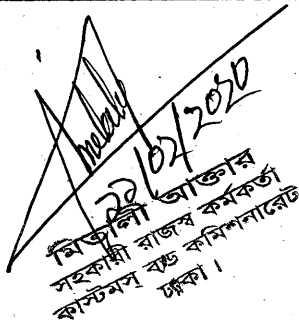 ২০/০২/২০২০
মিতালী আক্তার
সহকারী রাজস্ব কর্মকর্তা
কাস্টমস বন্ড কমিশনারেট
ঢাকা।